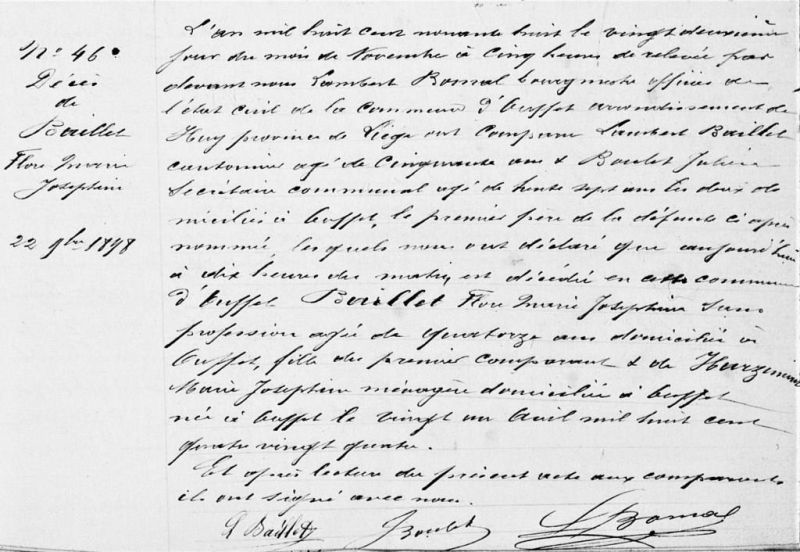 N° 46.
Décès
de
Baillet
Flore Marie
Joséphine
22 9bre 1898
L'an mil huit cent nonante huit le vingt deuxième
jour du mois de Novembre à Cinq heures de relevée par
devant nous Lambert Bomal bourgmestre officier de
l'état civil de la commune d'Ouffet arrondissement de
Huy province de Liège ont comparu Lambert Baillet
cantonnier agé de Cinquante ans & Boulet Julien
Secrétaire communal agé de trente sept ans les deux do
miciliés à Ouffet, le premier père de la défunte ci après
nommée lesquels nous ont déclaré que aujourd'hui
à dix heures du matin, est décédée en cette commune
d'Ouffet Baillet Flore Marie Joséphine Sans
profession agée de quatorze ans domiciliée à
Ouffet, fille du premier comparant & de
Marie Joséphine ménagère domiciliée à Ouffet
née à Ouffet le vingt un Avril mil huit cent
quatre vingt quatre.
Et après lecture du présent acte aux comparants
ils ont signé avec nous.
L Baillet JBoulet LBomal